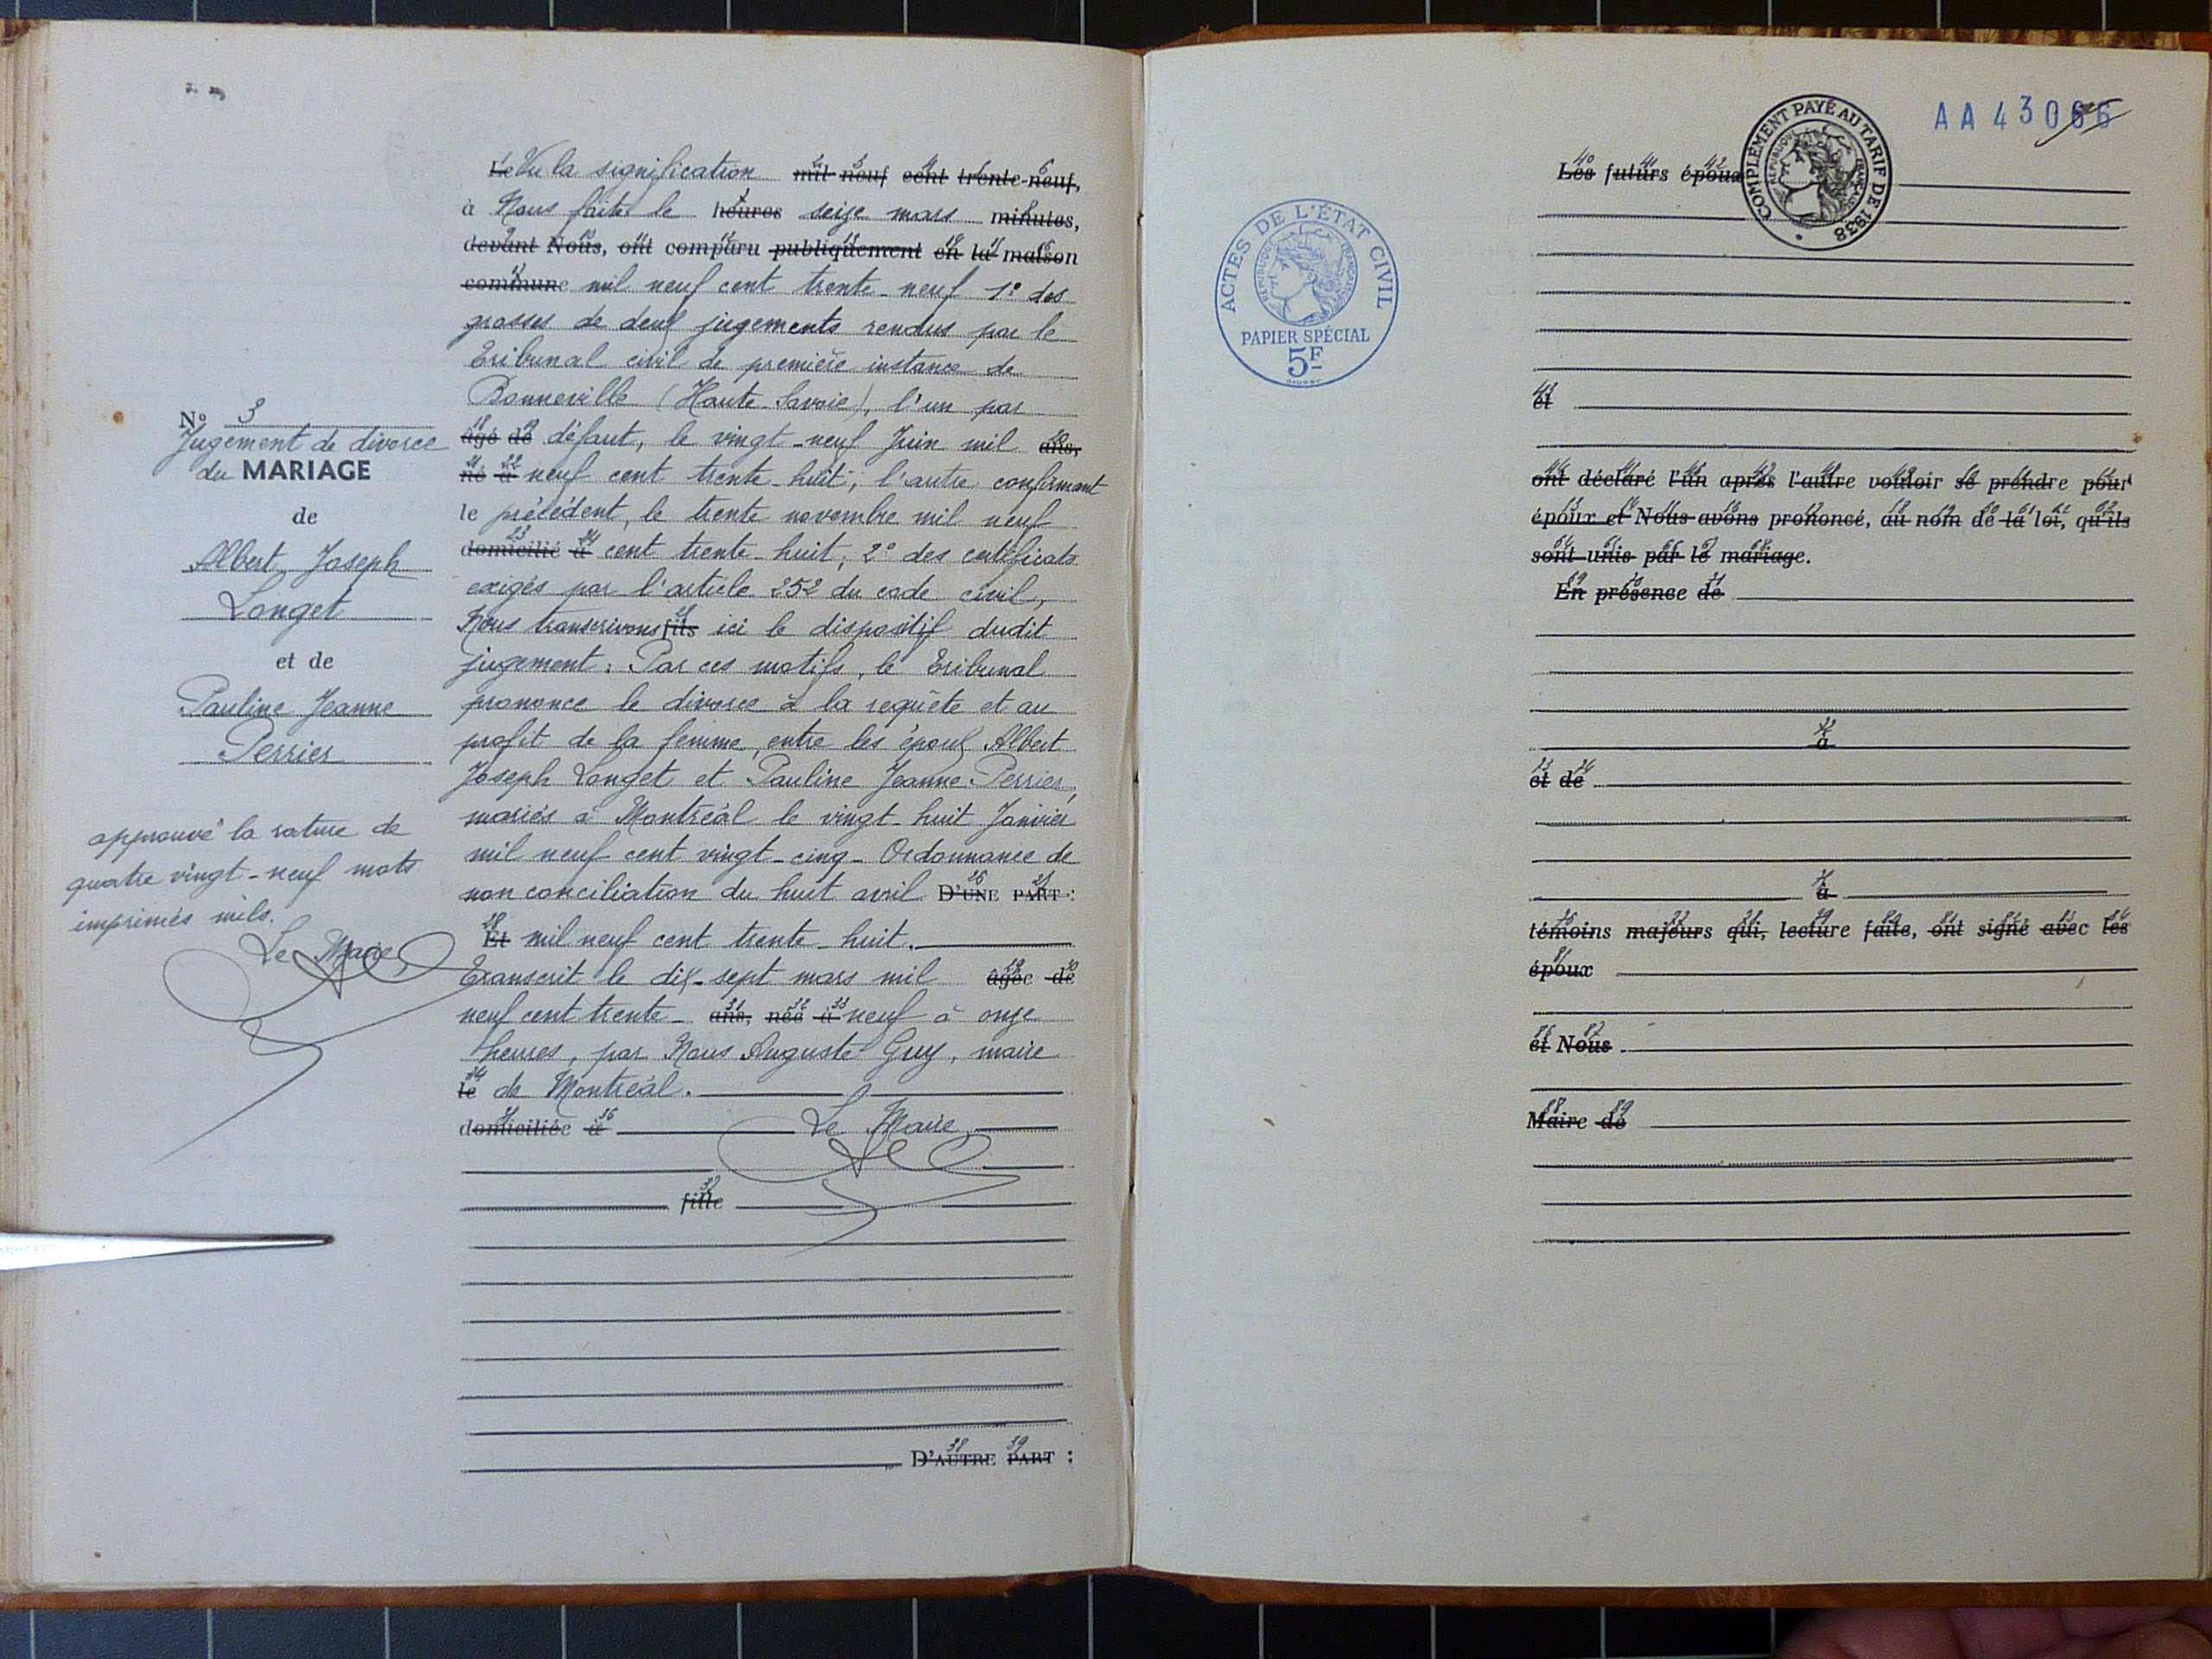 Le Vu la signification mil neuf cent trente-neuf,
à Nous faite le heures seize mars minutes,
devant Nous, ont comparu publiquement en la maison
commune mil neuf cent trente-neuf 1° des
grosses de deux jugements rendus par le
Tribunal civil de première instance de
Bonneville (Haute-Savoie), l'un par
âgé de défaut, le vingt-neuf Juin mil ans,
né à neuf cent trente-huit, l'autre confirmant
le précédent, le trente novembre mil neuf
domicilié à cent trente-huit, 2° des certificats
exigés par l'article 252 du code civil,
Nous transcrivons fils ici le dispositif dudit
jugement: Par ces motifs, le Tribunal
prononce le divorce à la requête et au
profit de la femme, entre les époux Albert
Joseph Longet et Pauline Jeanne Perrier,
mariés à Montréal le vingt-huit Janvier
mil neuf cent vingt-cinq - Ordonnance de
non conciliation du huit avril D'UNE PART :
Et mil neuf cent trente-huit.
Transcrit le dix-sept mars mil âgée de
neuf cent trente- ans, née à neuf à onze
heures, par Nous Auguste Guy, maire
le de Montréal.
domiciliée à Le Maire,
fille
D'AUTRE PART :
N° 3
Jugement de divorce
du MARIAGE
de
Albert Joseph
Longet
et de
Pauline Jeanne
Perrier
approuvé la rature de
quatre vingt-neuf mots
imprimés nuls.
Le Maire
ACTES DE L'ÉTAT CIVIL
RÉPUBLIQUE FRANÇAISE
PAPIER SPÉCIAL
5F
COMPLÉMENT PAYÉ AU TARIF DE 1938
RÉPUBLIQUE FRANÇAISE
AA43066
Les futurs époux
et
ont déclaré l'un après l'autre vouloir se prendre pour
époux et Nous avons prononcé, au nom de la loi, qu'ils
sont unis par le mariage.
En présence de
à
et de
à
témoins majeurs qui, lecture faite, ont signé avec les
époux
et Nous
Maire de